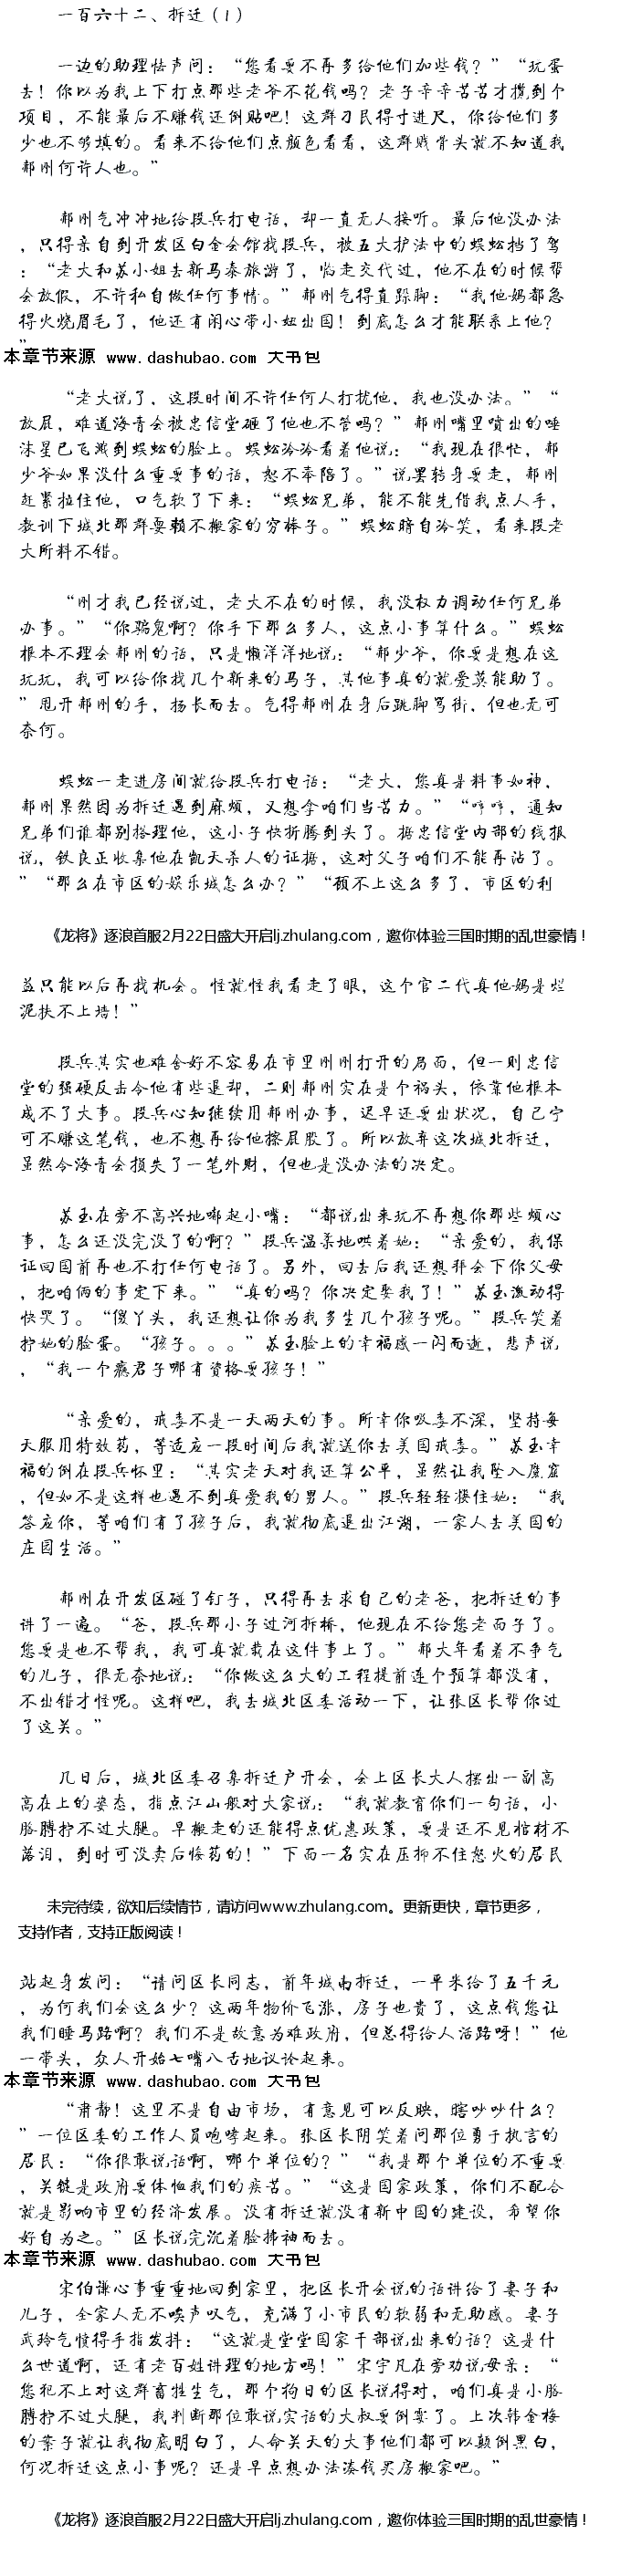 一百六十二、拆迁（1）
一边的助理怯声问：“您看要不再多给他们加些钱？”“玩蛋
去！你以为我上下打点那些老爷不花钱吗？老子辛辛苦苦才揽到个
项目，不能最后不赚钱还倒贴吧！这群刁民得寸进尺，你给他们多
少也不够填的。看来不给他们点颜色看看，这群贱骨头就不知道我
郝刚何许人也。”
郝刚气冲冲地给段兵打电话，却一直无人接听。最后他没办法
，只得亲自到开发区白金会馆找段兵，被五大护法中的蜈蚣挡了驾
：“老大和苏小姐去新马泰旅游了，临走交代过，他不在的时候帮
会放假，不许私自做任何事情。”郝刚气得直跺脚：“我他妈都急
得火烧眉毛了，他还有闲心带小妞出国！到底怎么才能联系上他？
”
本章节来源 www.dashubao.com 大书包
“老大说了，这段时间不许任何人打扰他，我也没办法。”“
放屁，难道海青会被忠信堂砸了他也不管吗？”郝刚嘴里喷出的唾
沫星已飞溅到蜈蚣的脸上。蜈蚣冷冷看着他说：“我现在很忙，郝
少爷如果没什么重要事的话，恕不奉陪了。”说罢转身要走，郝刚
赶紧拉住他，口气软了下来：“蜈蚣兄弟，能不能先借我点人手，
教训下城北那群耍赖不搬家的穷棒子。”蜈蚣暗自冷笑，看来段老
大所料不错。
“刚才我已经说过，老大不在的时候，我没权力调动任何兄弟
办事。”“你骗鬼啊？你手下那么多人，这点小事算什么。”蜈蚣
根本不理会郝刚的话，只是懒洋洋地说：“郝少爷，你要是想在这
玩玩，我可以给你找几个新来的马子，其他事真的就爱莫能助了。
”甩开郝刚的手，扬长而去。气得郝刚在身后跳脚骂街，但也无可
奈何。
蜈蚣一走进房间就给段兵打电话：“老大，您真是料事如神，
郝刚果然因为拆迁遇到麻烦，又想拿咱们当苦力。”“哼哼，通知
兄弟们谁都别搭理他，这小子快折腾到头了。据忠信堂内部的线报
说，铁良正收集他在凯天杀人的证据，这对父子咱们不能再沾了。
”“那么在市区的娱乐城怎么办？”“顾不上这么多了，市区的利
《龙将》逐浪首服2月22日盛大开启lj.zhulang.com，邀你体验三国时期的乱世豪情！
益只能以后再找机会。怪就怪我看走了眼，这个官二代真他妈是烂
泥扶不上墙！”
段兵其实也难舍好不容易在市里刚刚打开的局面，但一则忠信
堂的强硬反击令他有些退却，二则郝刚实在是个祸头，依靠他根本
成不了大事。段兵心知继续用郝刚办事，迟早还要出状况，自己宁
可不赚这笔钱，也不想再给他擦屁股了。所以放弃这次城北拆迁，
虽然令海青会损失了一笔外财，但也是没办法的决定。
苏玉在旁不高兴地嘟起小嘴：“都说出来玩不再想你那些烦心
事，怎么还没完没了的啊？”段兵温柔地哄着她：“亲爱的，我保
证回国前再也不打任何电话了。另外，回去后我还想拜会下你父母
，把咱俩的事定下来。”“真的吗？你决定娶我了！”苏玉激动得
快哭了。“傻丫头，我还想让你为我多生几个孩子呢。”段兵笑着
拧她的脸蛋。“孩子。。。”苏玉脸上的幸福感一闪而逝，悲声说
，“我一个瘾君子哪有资格要孩子！”
“亲爱的，戒毒不是一天两天的事。所幸你吸毒不深，坚持每
天服用特效药，等适应一段时间后我就送你去美国戒毒。”苏玉幸
福的倒在段兵怀里：“其实老天对我还算公平，虽然让我坠入魔窟
，但如不是这样也遇不到真爱我的男人。”段兵轻轻搂住她：“我
答应你，等咱们有了孩子后，我就彻底退出江湖，一家人去美国的
庄园生活。”
郝刚在开发区碰了钉子，只得再去求自己的老爸，把拆迁的事
讲了一遍。“爸，段兵那小子过河拆桥，他现在不给您老面子了。
您要是也不帮我，我可真就栽在这件事上了。”郝大年看着不争气
的儿子，很无奈地说：“你做这么大的工程提前连个预算都没有，
不出错才怪呢。这样吧，我去城北区委活动一下，让张区长帮你过
了这关。”
几日后，城北区委召集拆迁户开会，会上区长大人摆出一副高
高在上的姿态，指点江山般对大家说：“我就教育你们一句话，小
胳膊拧不过大腿。早搬走的还能得点优惠政策，要是还不见棺材不
落泪，到时可没卖后悔药的！”下面一名实在压抑不住怒火的居民
未完待续，欲知后续情节，请访问www.zhulang.com。更新更快，章节更多，
支持作者，支持正版阅读！
站起身发问：“请问区长同志，前年城南拆迁，一平米给了五千元
，为何我们会这么少？这两年物价飞涨，房子也贵了，这点钱您让
我们睡马路啊？我们不是故意为难政府，但总得给人活路呀！”他
一带头，众人开始七嘴八舌地议论起来。
本章节来源 www.dashubao.com 大书包
“肃静！这里不是自由市场，有意见可以反映，瞎吵吵什么？
”一位区委的工作人员咆哮起来。张区长阴笑着问那位勇于执言的
居民：“你很敢说话啊，哪个单位的？”“我是那个单位的不重要
，关键是政府要体恤我们的疾苦。”“这是国家政策，你们不配合
就是影响市里的经济发展。没有拆迁就没有新中国的建设，希望你
好自为之。”区长说完沉着脸拂袖而去。
本章节来源 www.dashubao.com 大书包
宋伯谦心事重重地回到家里，把区长开会说的话讲给了妻子和
儿子，全家人无不唉声叹气，充满了小市民的软弱和无助感。妻子
武玲气愤得手指发抖：“这就是堂堂国家干部说出来的话？这是什
么世道啊，还有老百姓讲理的地方吗！”宋宇凡在旁劝说母亲：“
您犯不上对这群畜牲生气，那个狗日的区长说得对，咱们真是小胳
膊拧不过大腿，我判断那位敢说实话的大叔要倒霉了。上次韩金梅
的案子就让我彻底明白了，人命关天的大事他们都可以颠倒黑白，
何况拆迁这点小事呢？还是早点想办法凑钱买房搬家吧。”
《龙将》逐浪首服2月22日盛大开启lj.zhulang.com，邀你体验三国时期的乱世豪情！